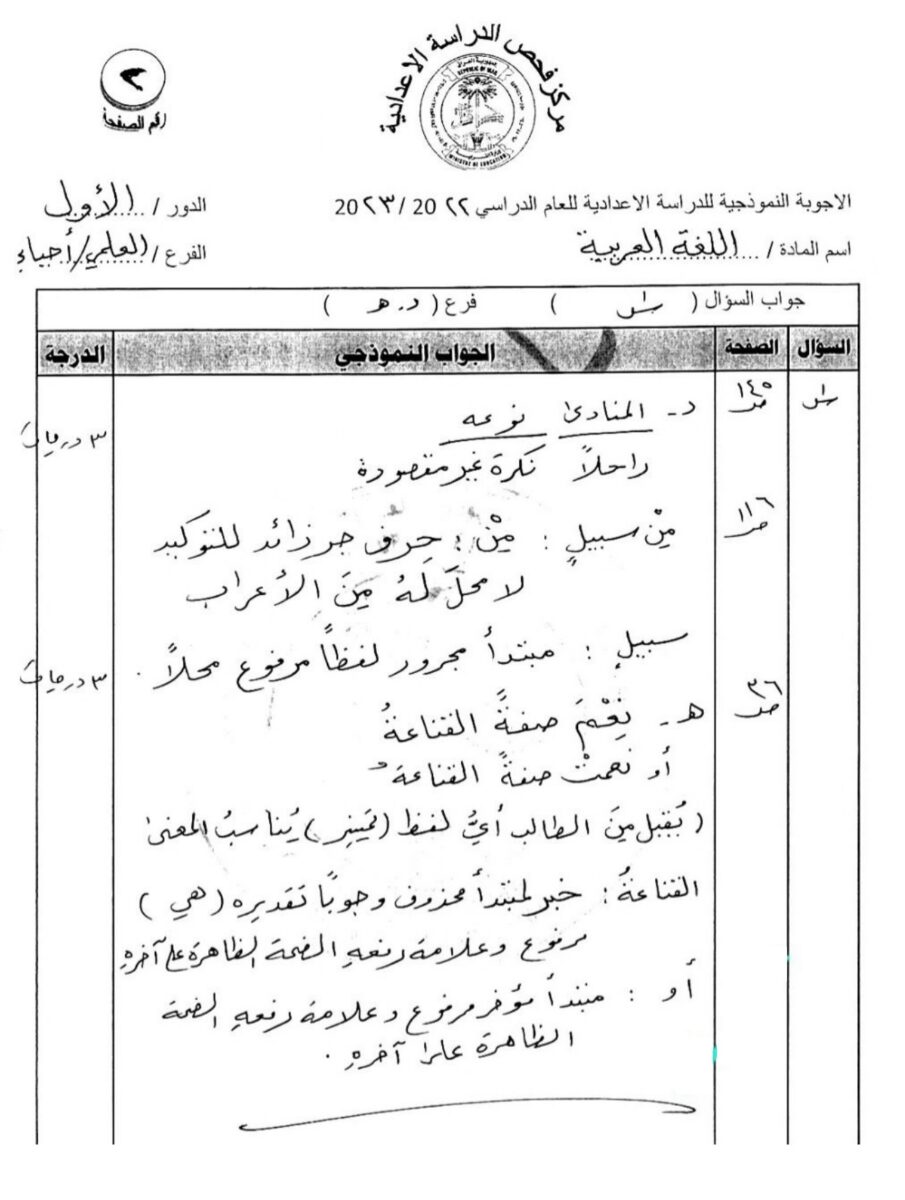 مركز فحص الدراسة الاعدادية
جمهورية العراق
REPUBLIC OF IRAQ
وزارة التربية
MINISTRY OF EDUCATION
٢
رقم الصفحة
الاجوبة النموذجية للدراسة الاعدادية للعام الدراسي ٢٢ 20 / ٢٣ 20 الدور / الأول
اسم المادة / اللغة العربية الفرع / العلمي/أحياء
جواب السؤال ( ) فرع ( د. هـ )
السؤال الصفحة الجواب النموذجي الدرجة
ص ١٤٥ د- المنادى نوعه ٣ درجات
راحلاً نكرة غير مقصودة
ص ١١٦ مِنْ سبيلٍ : مِنْ : حرف جر زائد للتوكيد
لا محلَّ لَهُ مِنَ الأعراب
سبيلٍ : مبتدأ مجرور لفظاً مرفوع محلاً . ٣ درجات
ص ٣٦ هـ- نِعْمَ صفةً القناعةُ
أو نعمتْ صفةً القناعةُ
( يُقبل مِنَ الطالب أيُّ لفظ (تمييز) يُناسبُ المعنى
القناعةُ : خبر لمبتدأ محذوف وجوبًا تقديره ( هي )
مرفوع وعلامة رفعهِ الضمة الظاهرة على آخرهِ
أو : مبتدأ مؤخر مرفوع وعلامة رفعهِ الضمة
الظاهرة على آخرهِ .